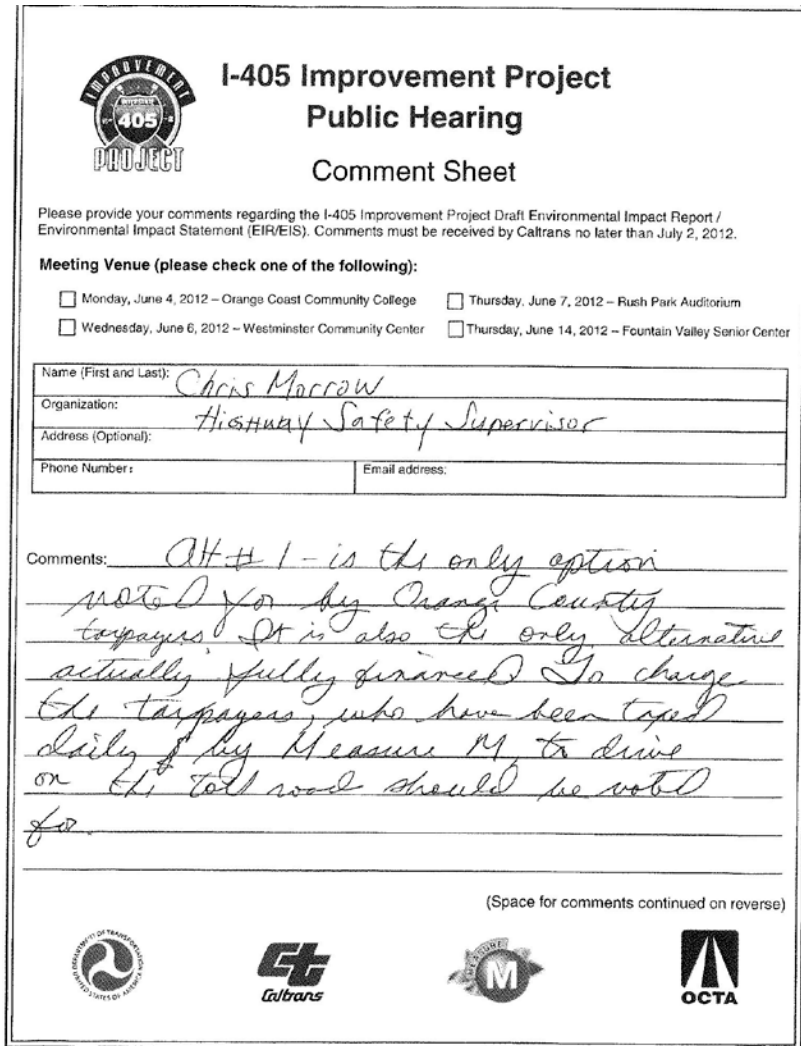 IMPROVEMENT
405
PROJECT
I-405 Improvement Project
Public Hearing
Comment Sheet
Please provide your comments regarding the I-405 Improvement Project Draft Environmental Impact Report /
Environmental Impact Statement (EIR/EIS). Comments must be received by Caltrans no later than July 2, 2012.
Meeting Venue (please check one of the following):
Monday, June 4, 2012 – Orange Coast Community College
Thursday, June 7, 2012 – Rush Park Auditorium
Wednesday, June 6, 2012 – Westminster Community Center
Thursday, June 14, 2012 – Fountain Valley Senior Center
Name (First and Last): Chris Morrow
Organization: Highway Safety Supervisor
Address (Optional):
Phone Number:
Email address:
Comments: Alt # 1 - is the only option
voted for by Orange County
taxpayers. It is also the only alternative
actually fully financed To charge
the taxpayers, who have been taxed
daily by Measure M, to drive
on the toll road should be voted
for.
(Space for comments continued on reverse)
DEPARTMENT OF TRANSPORTATION
UNITED STATES OF AMERICA
Ct
Caltrans
MEASURE
M
OCTA